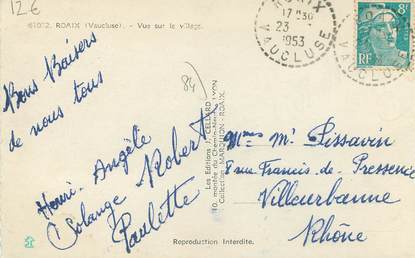 12 €
61032. ROAIX (Vaucluse). - Vue sur le village.
Bons Baisers
de nous tous
Henri. Angèle
Solange Robert
Paulette
84
Les Editions J. CELLARD
10, montée du Chemin-Neuf, LYON
Collection MARQUION - ROAIX
ROAIX
17 H 30
23
1953
VAUCLUSE
8F
RF
VAUCLUSE
Mme Mr Pissavin
8 rue Francis de Pressensé
Villeurbanne
Rhône
Reproduction Interdite.